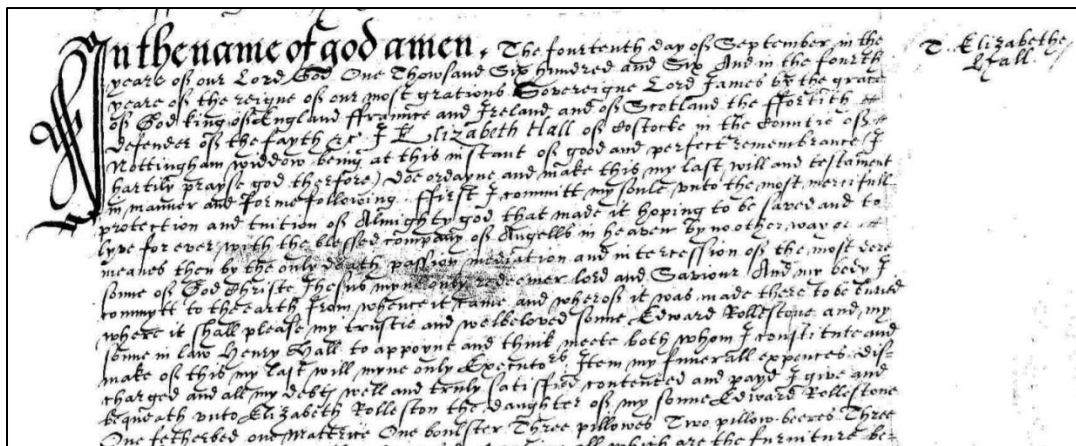 In the name of god amen, The fourteenth day of September in the
yeare of our Lord God One Thousand Six hundred and Six And in the fourth
yeare of the reigne of our most gratious Sovereigne Lord James by the grace
of God king of England ffraunce and Ireland and of Scotland the ffortith
defender of the fayth &c I Elizabeth Hall of in the Countie of
Nottingham widdow being at this instant of good and perfect remembrance (I
hartily prayse god therfore) doe ordayne and make this my last will and testament
in manner and forme following. ffirst I committ my soule unto the most mercifull
protection and tuition of Almighty god that made it hoping to be saved and to
lyve for ever with the blessed company of Angells in heaven by no other way or
meanes then by the only death passion mediation and intercession of the most dere
sonne of God Christe Jhesus myne only redeemer lord and Saviour. And my body I
committ to the earth from whence it came and wherof it was made there to be buried
where it shall please my trustie and welbeloved sonne Edward Rollestone and my
sonne in law Henry Hall to appoynt and think meete both whom I constitute and
make of this my last will myne only Executors. Item my funerall expences dis=
charged and all my debts well and truly satisfied contented and payd I give and
bequeath unto Elizabeth Rolleston the daughter of my sonne Edward Rollestone
One fetherbed one mattrice One boulster Three pillowes Two pillow-beeres Three
all which are the furniture be-
T. Elizabethe
Hall.